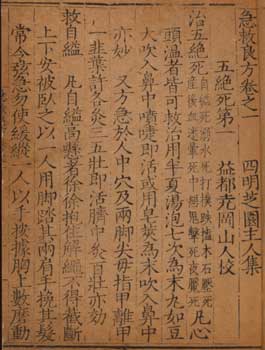 急救良方卷之一
四明芝園主人集
五絶死第一
益都老岡山人校
治五絶死
自縊死溺水死打撲跌搕木石壓死
産後血迷暈死中惡鬼擊死夜魘死
凡心
頭溫者皆可救治用半夏湯泡七次為末丸如豆
大吹入鼻中噴嚏即活或用皂莢為末吹入鼻中
亦妙 又方急於人中穴及兩脚大毋指甲離甲
一韭葉許各灸三五壯即活臍中灸百壯亦効
救自縊 凡自縊高懸者徐徐抱住解繩不得截斷
上下安被臥之以一人用脚踏其兩肩手挽其髮
常令弦急勿使緩縱一人以手按據胸上數磨動